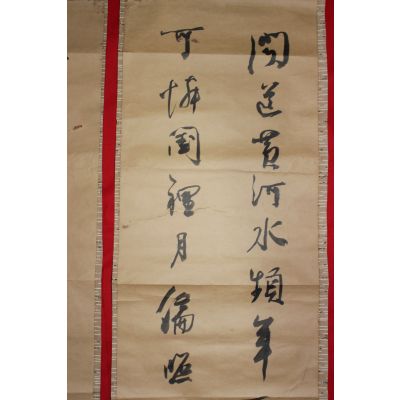 聞道黃河水頻年
可憐閨裡月偏照